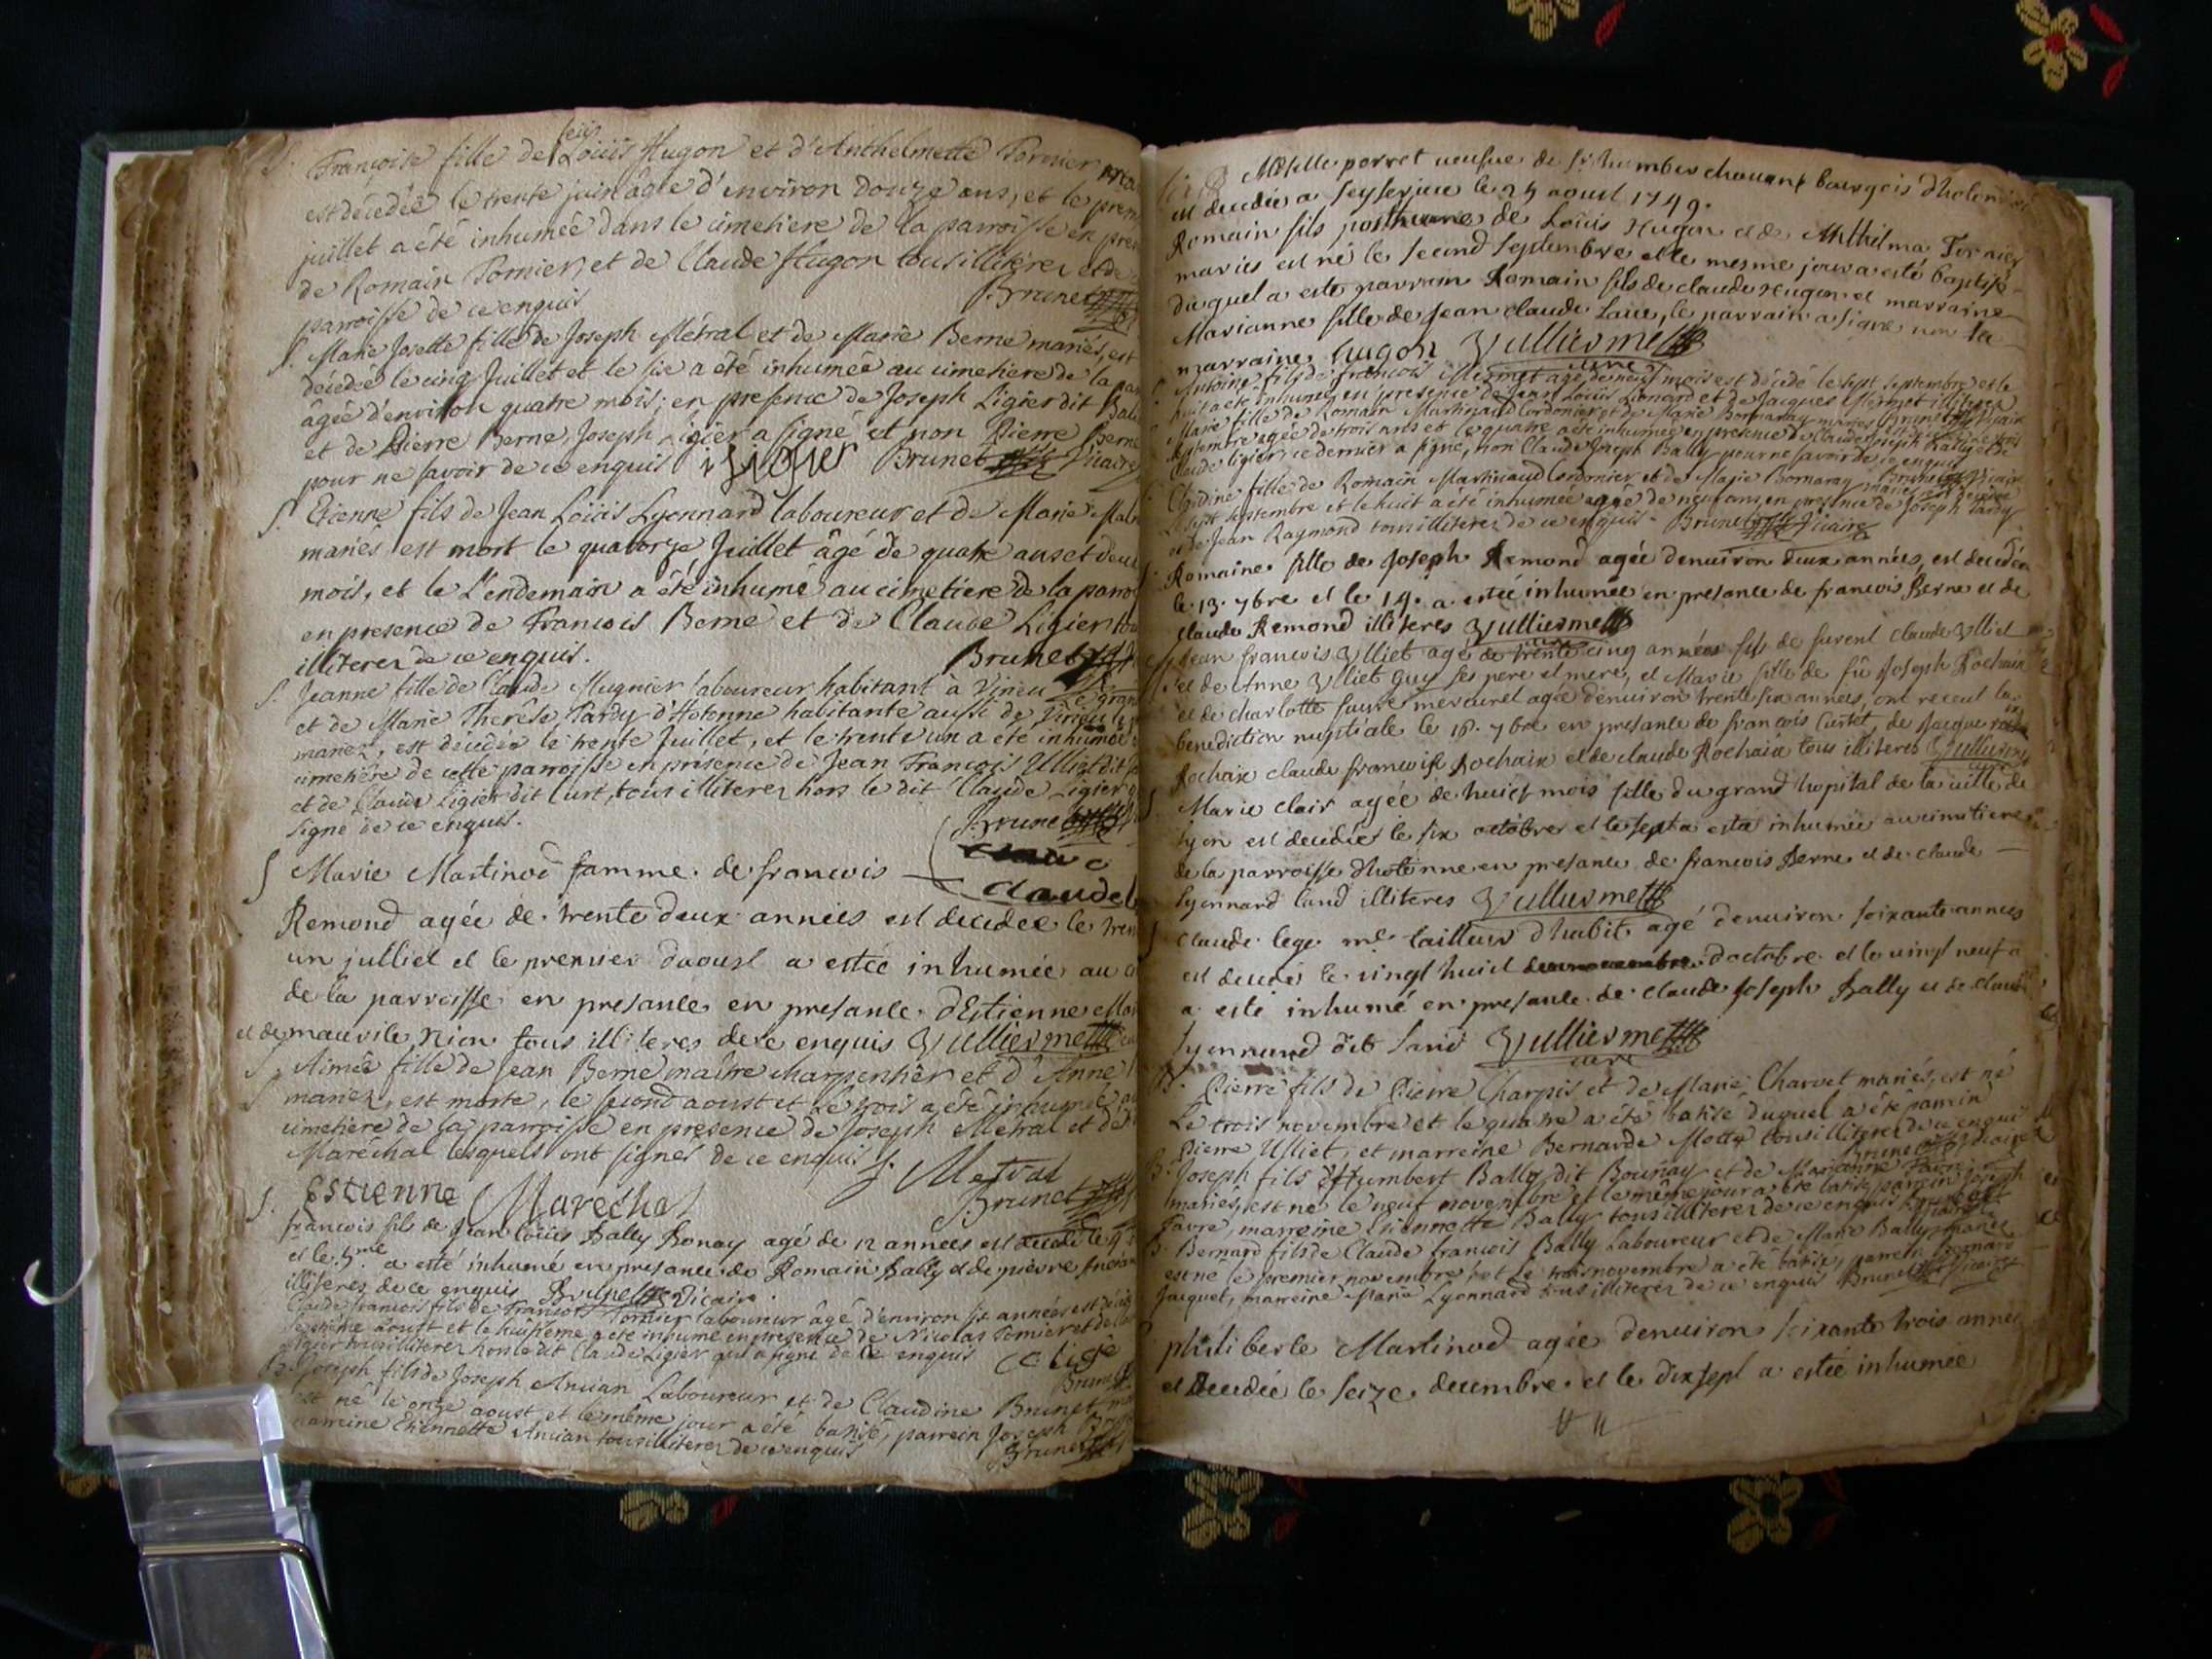 S. Françoise fille de feu Loüis Hugon et d'Anthelmette Tornier
est décédée le trente juin âgée d'environ douze ans, et le prem
juillet a été inhumée dans le cimetiere de la parroisse en pres
de Romain Tornier, et de Claude Hugon tous illiterez et de
parroisse de ce enquis Brunet
S. Marie Josette fille de Joseph Métral et de Marie Berne mariés, est
décédée le cinq Juillet et le six a été inhumée au cimetiere de la par
âgée d'environ quatre mois; en presence de Joseph Ligier dit
et de Pierre Berne, Joseph Ligier a signé et non Pierre Berne
pour ne savoir de ce enquis Ligier Brunet Vicaire
S. Etienne fils de Jean Loüis Lyonnard laboureur et de Marie
mariés est mort le quatorze Juillet âgé de quatre ans et deux
mois, et le l'endemain a été inhumé au cimetiere de la parroi
en presence de François Berne et de Claude Ligier tou
illiterez de ce enquis. Brunet
S. Jeanne fille de Claude Mugnier laboureur habitant à Virieu le grand
et de Marie Therése Tardy d'Hotonne habitante aussi de Virieu le
mariez, est décédée le trente Juillet, et le trente un a été inhumée
cimetiére de cette parroisse en présence de Jean François Ulliet dit
et de Claude Ligier dit Curt, tous illiterez hors le dit Claude Ligier
signé de ce enquis. Brunet
S Marie Martinod famme de francois Claude
Remond agée de trente deux années est decedee le tren
un julliet et le premier daoust a estée inhumée au
de la parroisse en presance en presance d'Estienne
et de maurile Nion tous illiteres de ce enquis Vulliermet
S. Aimée fille de Jean Berne maître charpentier et d'Anne
mariez, est morte, le second aoust et le trois a été inhumée au
cimetiere de la parroisse en présence de Joseph Metral et d'E
Maréchal lesquels ont signés de ce enquis J. Metral
Estienne Mareshal Brunet
S. francois fils de Jean Loüis Bally Bonay agé de 12 années est decedé le 4
et le 5me a esté inhumé en presance de Romain Bally et de pierre
illiteres de ce enquis Brunet Vicaire.
Claude francois fils de François Tornier laboureur âgé d'environ six années est décédé
septième aoust et le huitieme a été inhumé en presence de Nicolas Tornier et de
Ligier tous illiterez hors le dit Claude Ligier qui a signé de ce enquis CC Ligie
Brunet
B. Joseph fils de Joseph Ancian Laboureur et de Claudine Brunet
est né le onze aoust et le même jour a été batisé, parrein Joseph
marreine Etiennette Ancian tous illiterez de ce enquis Brunet
perret veufue de Sr humber chouant bourgois dhotonne
est decedée a seysserieu le 24 aoust 1749.
Romain fils posthume de Loüis Hugon et de Anthelma Tornier
mariés est né le second Septembre et le mesme jour a esté baptisé
duquel a esté parrain Romain fils de claude Hugon et marraine
Marianne fille de Jean claude Laue, le parrain a signé non la
marraine hugon Vulliermet curé
Antoine fils de francois Mermet agé de neuf mois est décédé le sept septembre et le
huit a été inhumé en presence de Jean Loüis Lionard et de Jacques Mermet illiterez
Marie fille de Romain Martinaud Cordonier et de Marie Bornaray mariés Brunet Vicaire
septembre agée de trois ans et le quatre a été inhumée en presence de Claude Joseph Bally et de
Claude Ligier, ce dernier a signé, non Claude Joseph Bally pour ne savoir de ce enquis
Claudine fille de Romain Martinaud Cordonier et de Marie Bornaray mariés Brunet Vicaire
sept septembre et le huit a été inhumée agée de neuf ans, en presence de Joseph Tardy
et de Jean Raymond tous illiterez de ce enquis Brunet Vicaire
Romaine fille de Joseph Remond agée denuiron deux années, est decedée
le 13 7bre et le 14 a estée inhumée en presance de francois Berne et de
claude Remond illiteres Vulliermet curé
Jean francois Vlliet agé de trente cinq années fils de furent claude Vlliet
et de Anne Vlliet Guy ses pere et mere, et Marie fille de fû Joseph Rochaix
et de charlotte faure mercurel agée denuiron trente six années, ont receut la
benediction nuptiale le 16 7bre en presance de francois Curtet, de Jacque
Rochaix claude francoise Rochaix et de claude Rochaix tous illiteres Vulliermet curé
S Marie clair agée de huict mois fille du grand hopital de la ville de
Lyon est decedée le six octobre et le sept a esté inhumée au cimetiere
de la parroisse dhotonne en presance de francois Berne et de claude
Lyonnard Land illiteres Vulliermet
S claude lege me tailleur dhabit agé denuiron soixante années
est decedé le vingt huict doctobre et le vingt neuf a
a esté inhumé en presance de claude Joseph Bally et de claude
Lyonnard dit Land Vulliermet curé
B. Pierre fils de Pierre Charpis et de Marie Charvet mariés, est né
Le trois novembre et le quatre a été batisé duquel a été parrein
Pierre Ulliet, et marreine Bernarde Mottet tous illiterez de ce enquis
Brunet Vicaire
B. Joseph fils d'Humbert Bally dit Bounay et de Marianne Favre
mariés, est né le neuf novembre et le même jour a été batisé parrein Joseph
Favre, marreine Etiennette Bally tous illiterez de ce enquis Brunet Vicaire
B. Bernard fils de Claude françois Bally Laboureur et de Marie Bally mariez
est né le premier novembre, et le trois novembre a été batisé, parrein Bernard
Jacquet, marreine Marie Lyonnard tous illiterez de ce enquis Brunet Vicaire
philiberte Martinod agée denuiron soixante trois annee
et Decedée le seize decembre et le dix sept a estée inhumée